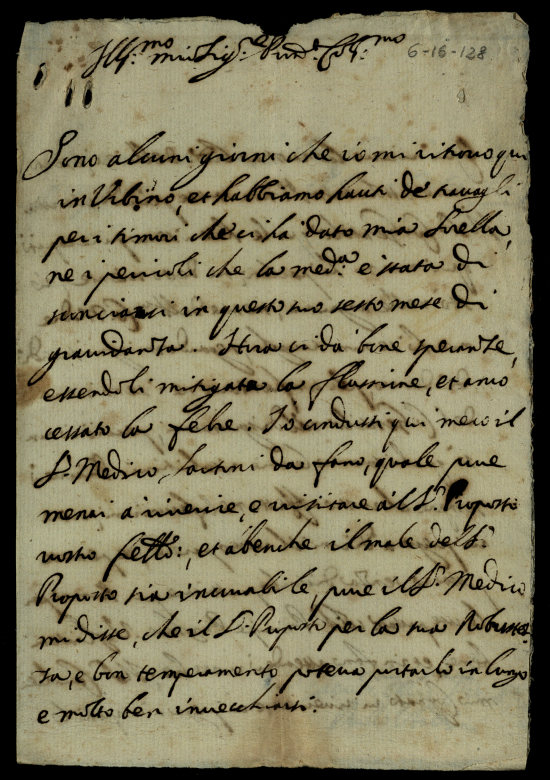 Ill.mo mio Sig.re Pron.e Col.mo
6-16-128
Sono alcuni giorni che io mi ritrovo qui
in Urbino, et habbiamo hauti de' travagli
per i timori che ci ha dato mia Sorella,
ne i pericoli che la med.a è stata di
sconciarsi in questo suo sesto mese di
gravidanza. Hora ci dà bone speranze,
essendoli mitigata la flussione, et anco
cessato la febre. Io condussi qui meco il
S.r Medico da Fano, quale pure
menai a riverire, e visitare il S.r Proposto
vostro fratello, et a benche il male del S.r
Proposto sia incurabile, pure il S.r Medico
mi disse, che il S.r Proposto per la sua Robustez-
za, e bon temperamento poteva portarlo in lungo
e molto ben invecchiarsi.